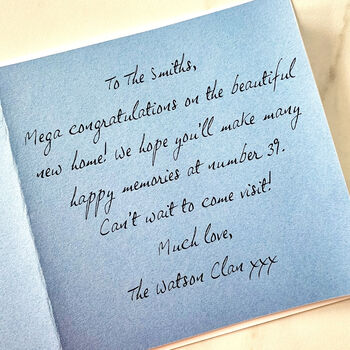 To The Smiths,
Mega congratulations on the beautiful
new home! We hope you'll make many
happy memories at number 39.
Can't wait to come visit!
Much love,
The Watson Clan xxx